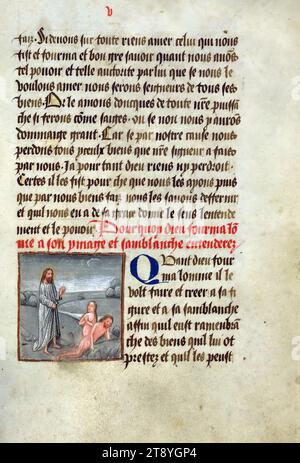 v
faiz. Si devons sur toute riens amer celui qui nous
fist et fourma et bon gre savoir quant nous avōs
tel povoir et telle autorite par lui que se nous le
voulons amer nous serons seigneurs de tous ses
biens. Or le amons doncques de toute nr̄e puissā
che si ferons cōme saiges. ou se non nous y aurōs
dommaige grant. Car se par nostre cause nous
perdons tous yceulx biens que nr̄e signeur a faitz
par nous. Ja pour tant dieu riens ny perdroit.
Certes il les fist pour che que nous les apons puis
que par nous biens fay nous les savons desservir
et quil nous en a de sa grace donne le sens lentende
ment et le povoir. Pourquoy dieu fourma lō
me a son ymage et samblanche entenderez
Quant dieu four
ma lomme il le
volt faire et creer a sa fi
gure et a sa samblanche
affin quil eust ramenbrā
che des biens quil lui ot
prestez et quil les peust
alamy
Image ID: 2T8YGP4
www.alamy.com